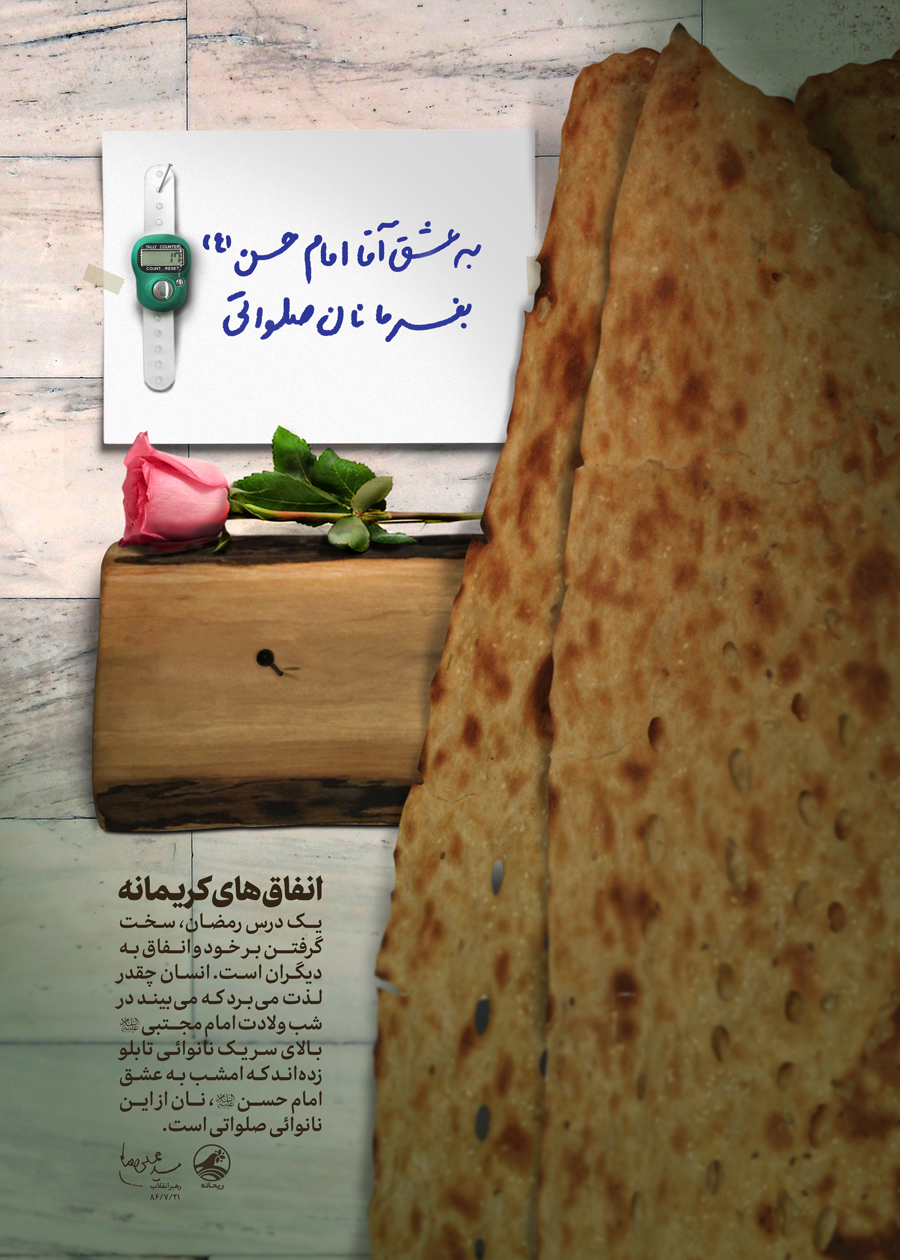 به عشق آقا امام حسن (ع)
بفرما نان صلواتی
TALLY COUNTER
COUNT RESET
انفاق‌های کریمانه
یک درس رمضان، سخت
گرفتن بر خود و انفاق به
دیگران است. انسان چقدر
لذت می‌برد که می‌بیند در
شب ولادت امام مجتبی علیه‌السلام
بالای سر یک نانوائی تابلو
زده‌اند که امشب به عشق
امام حسن علیه‌السلام، نان از این
نانوائی صلواتی است.
ریحانه
رهبر انقلاب
۸۶/۷/۲۱